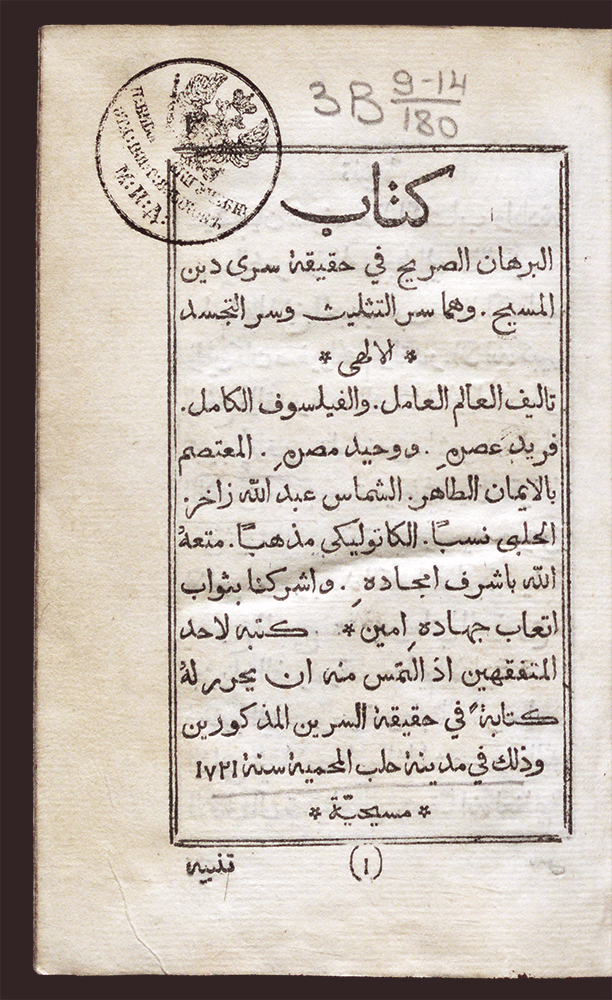 ЗВ 9-14
180
М. И. Д.
كتاب
البرهان الصريح في حقيقة سرى دين
المسيح . وهما سر التثليث وسر التجسد
* الالهى *
تاليف العالم العامل . والفيلسوف الكامل .
فريد عصرهِ . ووحيد مصرهِ . المعتصم
بالايمان الطاهر . الشماس عبد الله زاخر .
الحلبى نسبًا . الكاتوليكى مذهبًا . متعهُ
الله باشرف امجادهِ . واشركنا بثواب
اتعاب جهادهِ امين * كتبه لاحد
المتفقهين اذ التمس منه ان يحرر لهُ
كتابةً في حقيقة السرين المذكورين
وذلك في مدينة حلب المحمية سنة ١٧٢١
* مسيحيّة *
(١)
تنبيه